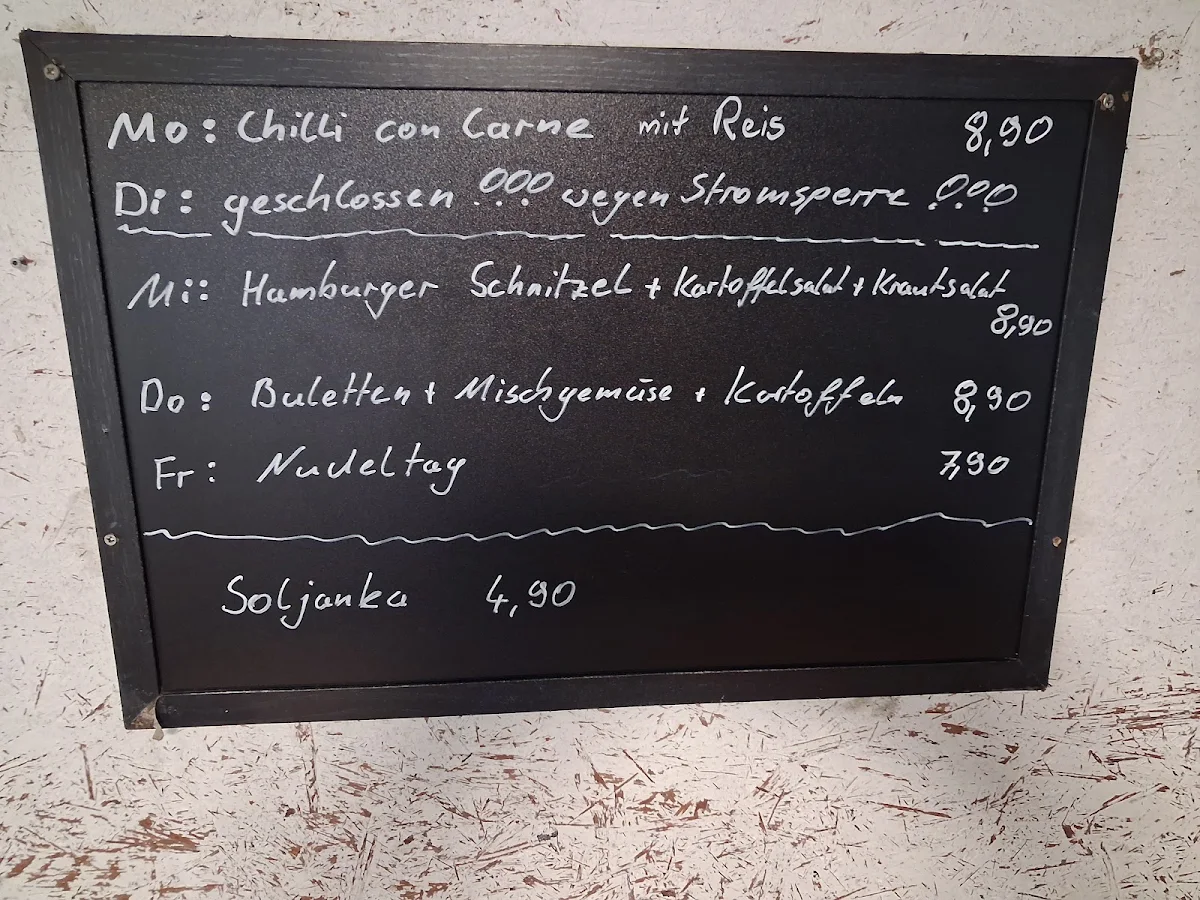 Mo: Chilli con Carne mit Reis 8,90
Di: geschlossen !!! wegen Stromsperre !!!
Mi: Hamburger Schnitzel + Kartoffelsalat + Krautsalat
8,90
Do: Buletten + Mischgemüse + Kartoffeln 8,90
Fr: Nudeltag 7,90
Soljanka 4,90